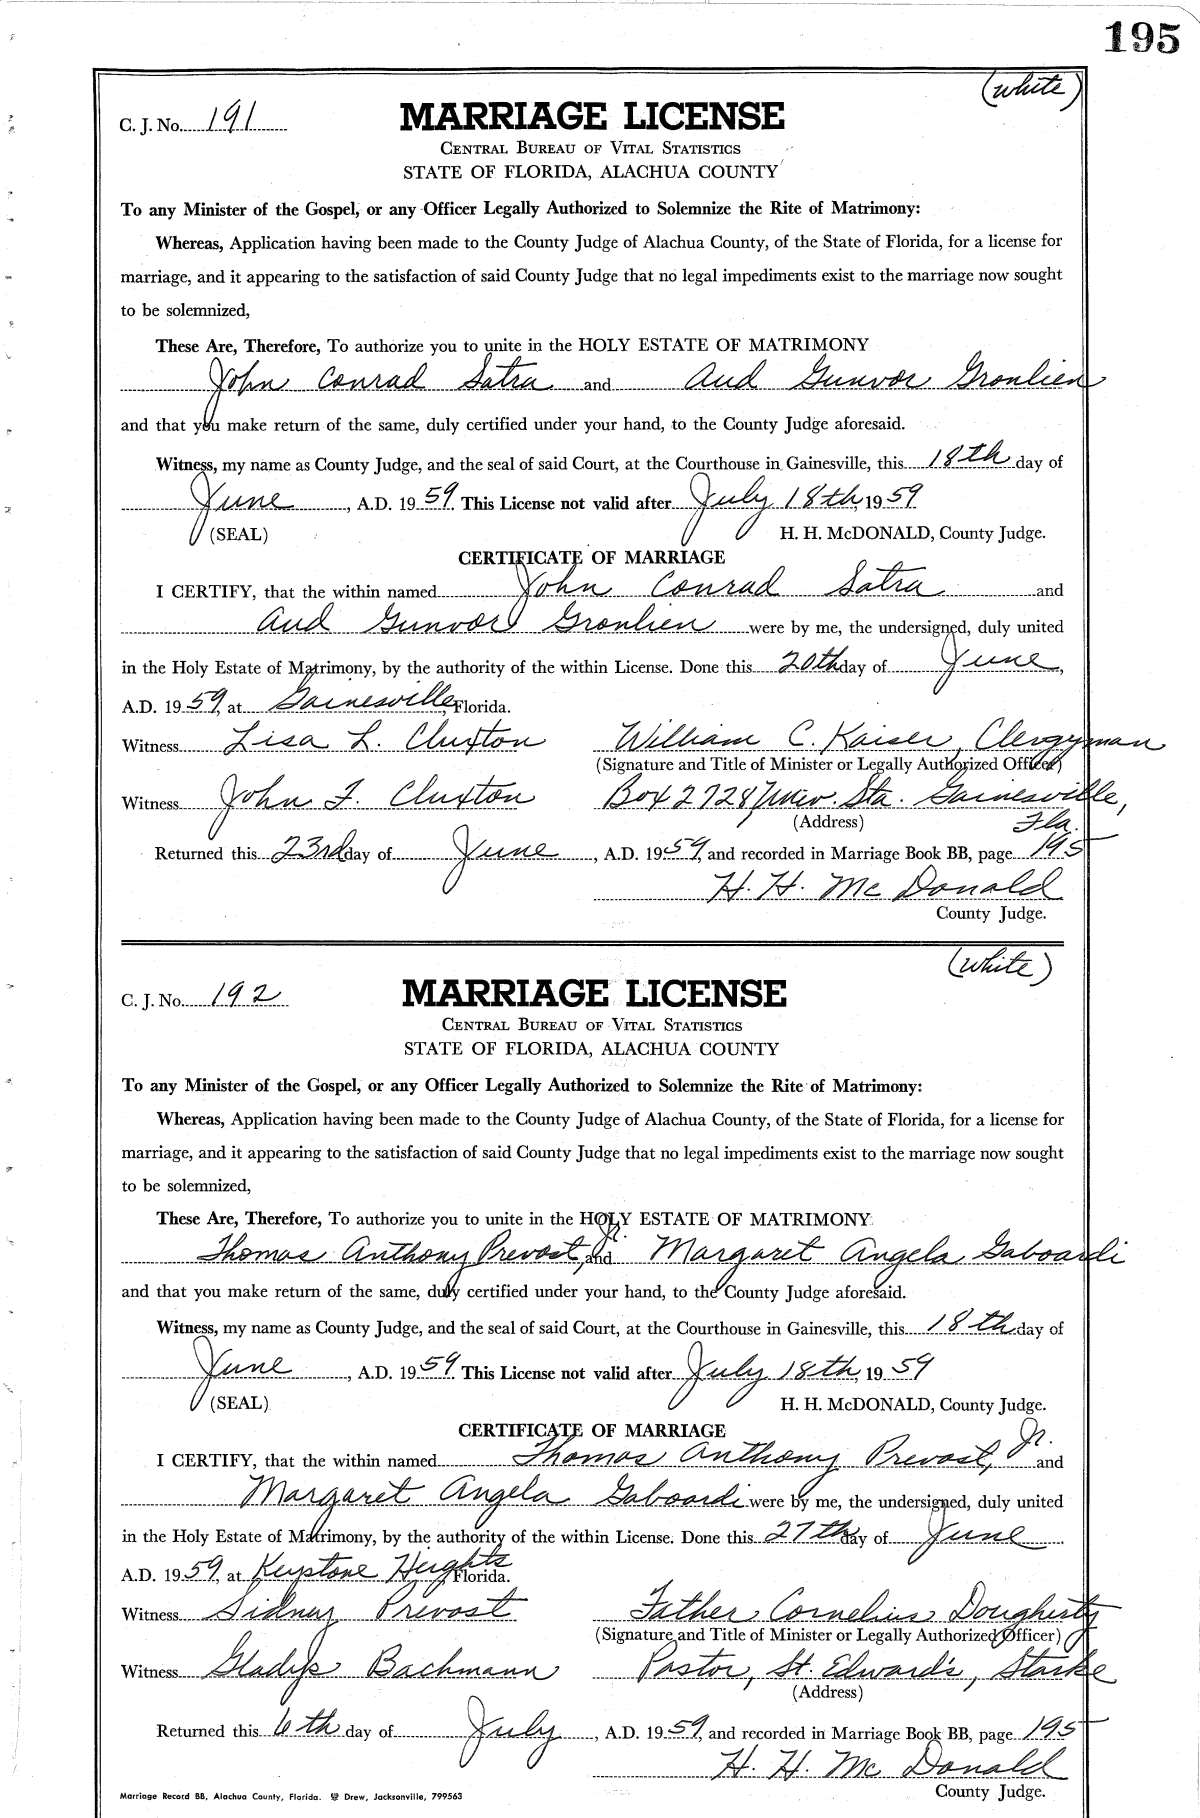 195
(white)
C. J. No. 191
MARRIAGE LICENSE
CENTRAL BUREAU OF VITAL STATISTICS
STATE OF FLORIDA, ALACHUA COUNTY
To any Minister of the Gospel, or any Officer Legally Authorized to Solemnize the Rite of Matrimony:
Whereas, Application having been made to the County Judge of Alachua County, of the State of Florida, for a license for
marriage, and it appearing to the satisfaction of said County Judge that no legal impediments exist to the marriage now sought
to be solemnized,
These Are, Therefore, To authorize you to unite in the HOLY ESTATE OF MATRIMONY
John Conrad Satra and Aud Gunvor Gronlien
and that you make return of the same, duly certified under your hand, to the County Judge aforesaid.
Witness, my name as County Judge, and the seal of said Court, at the Courthouse in Gainesville, this 18th day of
June, A.D. 1959. This License not valid after July 18th, 1959
(SEAL) H. H. McDONALD, County Judge.
CERTIFICATE OF MARRIAGE
I CERTIFY, that the within named John Conrad Satra and
Aud Gunvor Gronlien were by me, the undersigned, duly united
in the Holy Estate of Matrimony, by the authority of the within License. Done this 20th day of June,
A.D. 1959, at Gainesville, Florida.
Witness Lisa L. Cluxton William C. Kaiser, Clergyman
(Signature and Title of Minister or Legally Authorized Officer)
Witness John F. Cluxton Box 2728, Univ. Sta. Gainesville,
(Address) Fla.
Returned this 23rd day of June, A.D. 1959, and recorded in Marriage Book BB, page 195
H. H. McDonald
County Judge.
(white)
C. J. No. 192
MARRIAGE LICENSE
CENTRAL BUREAU OF VITAL STATISTICS
STATE OF FLORIDA, ALACHUA COUNTY
To any Minister of the Gospel, or any Officer Legally Authorized to Solemnize the Rite of Matrimony:
Whereas, Application having been made to the County Judge of Alachua County, of the State of Florida, for a license for
marriage, and it appearing to the satisfaction of said County Judge that no legal impediments exist to the marriage now sought
to be solemnized,
These Are, Therefore, To authorize you to unite in the HOLY ESTATE OF MATRIMONY
Thomas Anthony Prevost, Jr. and Margaret Angela Gaboardi
and that you make return of the same, duly certified under your hand, to the County Judge aforesaid.
Witness, my name as County Judge, and the seal of said Court, at the Courthouse in Gainesville, this 18th day of
June, A.D. 1959. This License not valid after July 18th, 1959
(SEAL) H. H. McDONALD, County Judge.
CERTIFICATE OF MARRIAGE
I CERTIFY, that the within named Thomas Anthony Prevost, Jr. and
Margaret Angela Gaboardi were by me, the undersigned, duly united
in the Holy Estate of Matrimony, by the authority of the within License. Done this 27th day of June
A.D. 1959, at Keystone Heights Florida.
Witness Sidney Prevost Father Cornelius Dougherty
(Signature and Title of Minister or Legally Authorized Officer)
Witness Gladys Bachmann Pastor, St. Edward's, Starke
(Address)
Returned this 6th day of July, A.D. 1959, and recorded in Marriage Book BB, page 195
H. H. McDonald
County Judge.
Marriage Record BB, Alachua County, Florida. Drew, Jacksonville, 799563